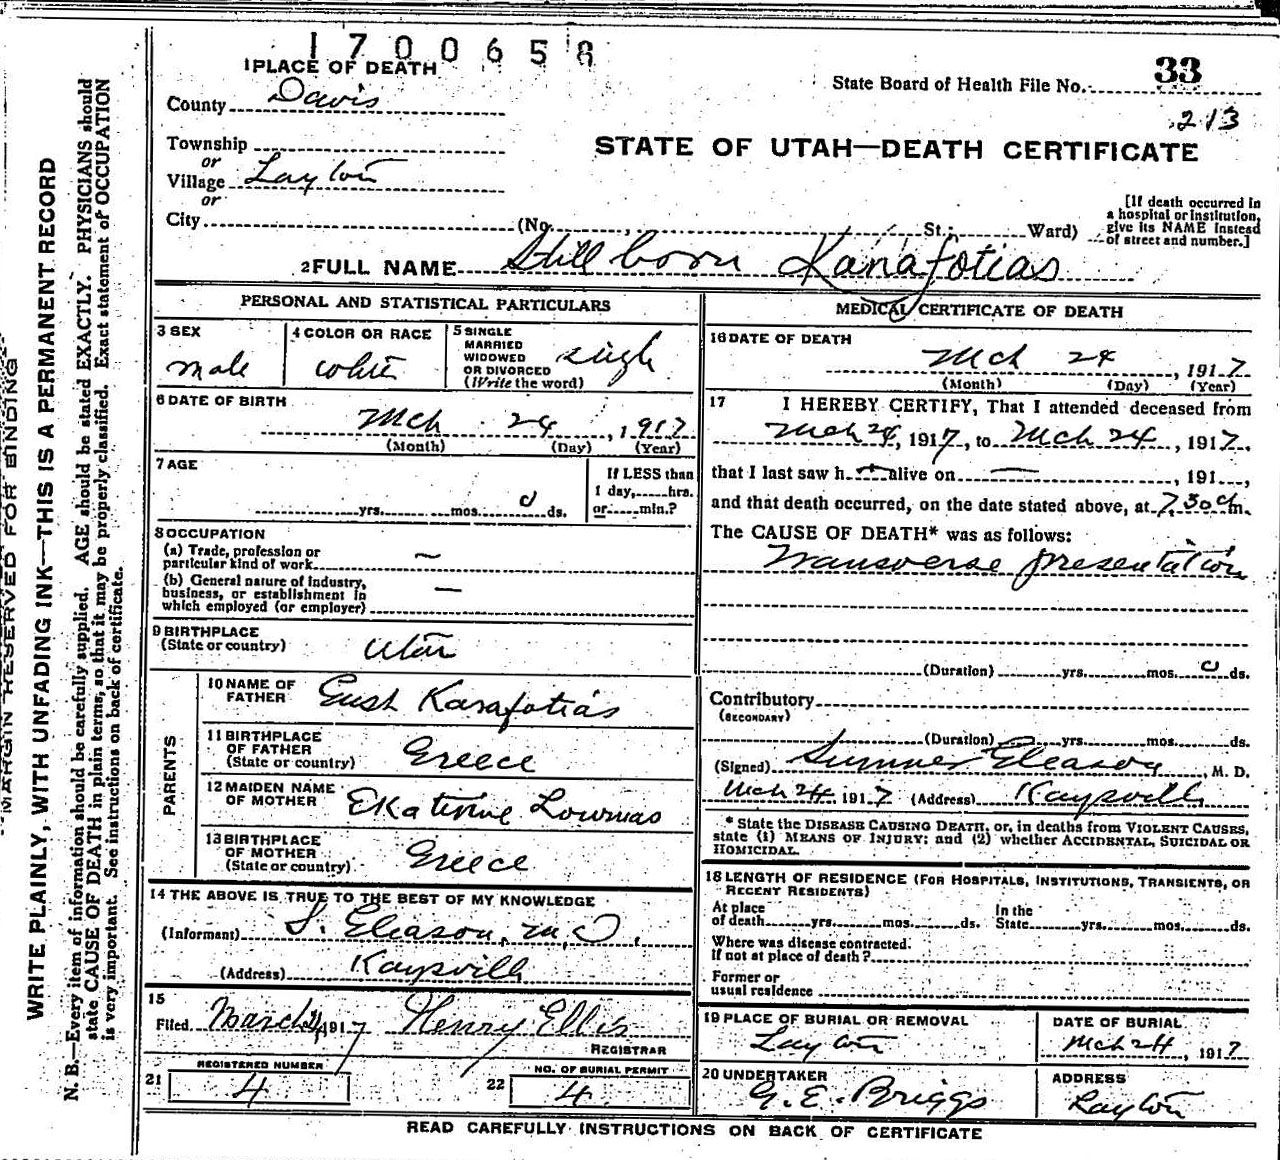 1700658
1 PLACE OF DEATH
County Davis
State Board of Health File No. 33
213
Township
or
Village Layton
or
City
STATE OF UTAH—DEATH CERTIFICATE
(No. , St.; Ward)
[If death occurred in
a hospital or institution,
give its NAME instead
of street and number.]
2 FULL NAME Still born Karafotias
PERSONAL AND STATISTICAL PARTICULARS
3 SEX
male
4 COLOR OR RACE
white
5 SINGLE
MARRIED
WIDOWED
OR DIVORCED
(Write the word)
single
6 DATE OF BIRTH
Mch 24, 1917
(Month) (Day) (Year)
7 AGE
yrs. mos. 0 ds.
If LESS than
1 day, hrs.
or min.?
8 OCCUPATION
(a) Trade, profession or
particular kind of work —
(b) General nature of industry,
business, or establishment in
which employed (or employer) —
9 BIRTHPLACE
(State or country) Utah
PARENTS
10 NAME OF
FATHER Gust Karafotias
11 BIRTHPLACE
OF FATHER
(State or country) Greece
12 MAIDEN NAME
OF MOTHER EKaterine Lowmas
13 BIRTHPLACE
OF MOTHER
(State or country) Greece
14 THE ABOVE IS TRUE TO THE BEST OF MY KNOWLEDGE
(Informant) S. Gleason, M.D.
(Address) Kaysville
15
Filed March 1917 Henry Ellis
REGISTRAR
21 REGISTERED NUMBER
4
22 NO. OF BURIAL PERMIT
4
MEDICAL CERTIFICATE OF DEATH
16 DATE OF DEATH
Mch 24, 1917
(Month) (Day) (Year)
17 I HEREBY CERTIFY, That I attended deceased from
Mch 24, 1917, to Mch 24, 1917,
that I last saw h— alive on —, 191 ,
and that death occurred, on the date stated above, at 7.30 a m.
The CAUSE OF DEATH* was as follows:
Transverse presentation
(Duration) yrs. mos. 0 ds.
Contributory
(SECONDARY)
(Duration) yrs. mos. ds.
(Signed) Sumner Gleason, M. D.
Mch 24 1917 (Address) Kaysville
* State the DISEASE CAUSING DEATH, or, in deaths from VIOLENT CAUSES,
state (1) MEANS OF INJURY; and (2) whether ACCIDENTAL, SUICIDAL OR
HOMICIDAL.
18 LENGTH OF RESIDENCE (FOR HOSPITALS, INSTITUTIONS, TRANSIENTS, OR
RECENT RESIDENTS)
At place
of death yrs. mos. ds.
In the
State yrs. mos. ds.
Where was disease contracted.
If not at place of death?
Former or
usual residence
19 PLACE OF BURIAL OR REMOVAL
Layton
DATE OF BURIAL
Mch 24, 1917
20 UNDERTAKER
G. E. Briggs
ADDRESS
Layton
READ CAREFULLY INSTRUCTIONS ON BACK OF CERTIFICATE
MARGIN RESERVED FOR BINDING
WRITE PLAINLY, WITH UNFADING INK—THIS IS A PERMANENT RECORD
N. B.—Every item of information should be carefully supplied. AGE should be stated EXACTLY. PHYSICIANS should
state CAUSE OF DEATH in plain terms, so that it may be properly classified. Exact statement of OCCUPATION
is very important. See instructions on back of certificate.